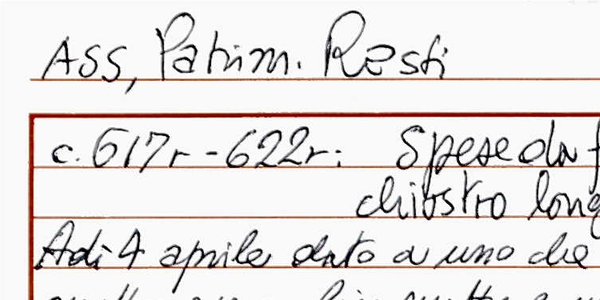 ASS, Patrim. Resti
c. 617r - 622r: Spese da f
chiostro long
Adi 4 aprile dato a uno che